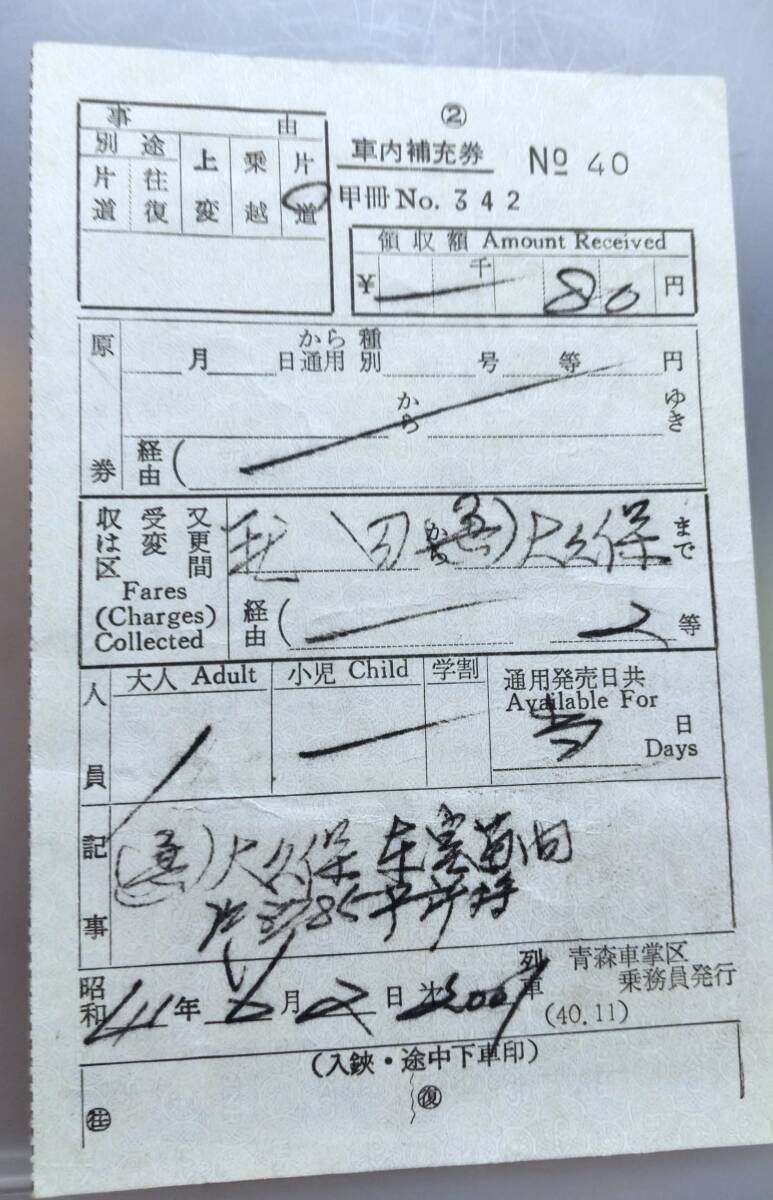 ②
車内補充券 No 40
甲冊No. 342
事由
別途 上変 乗越 片道
片道 往復
領収額 Amount Received
¥ 千 80 円
原券
月 日から通用 種別 号 等 円
から ゆき
経由(
収受又は変更区間
Fares (Charges) Collected
から 奥)大久保 まで
経由( 2 等
人員
大人 Adult 小児 Child 学割 通用発売日共
Available For
1 当 日
Days
記事
大久保
昭和 41 年 月 2 日 列車 青森車掌区
乗務員発行
(40.11)
(入鋏・途中下車印)
往 復